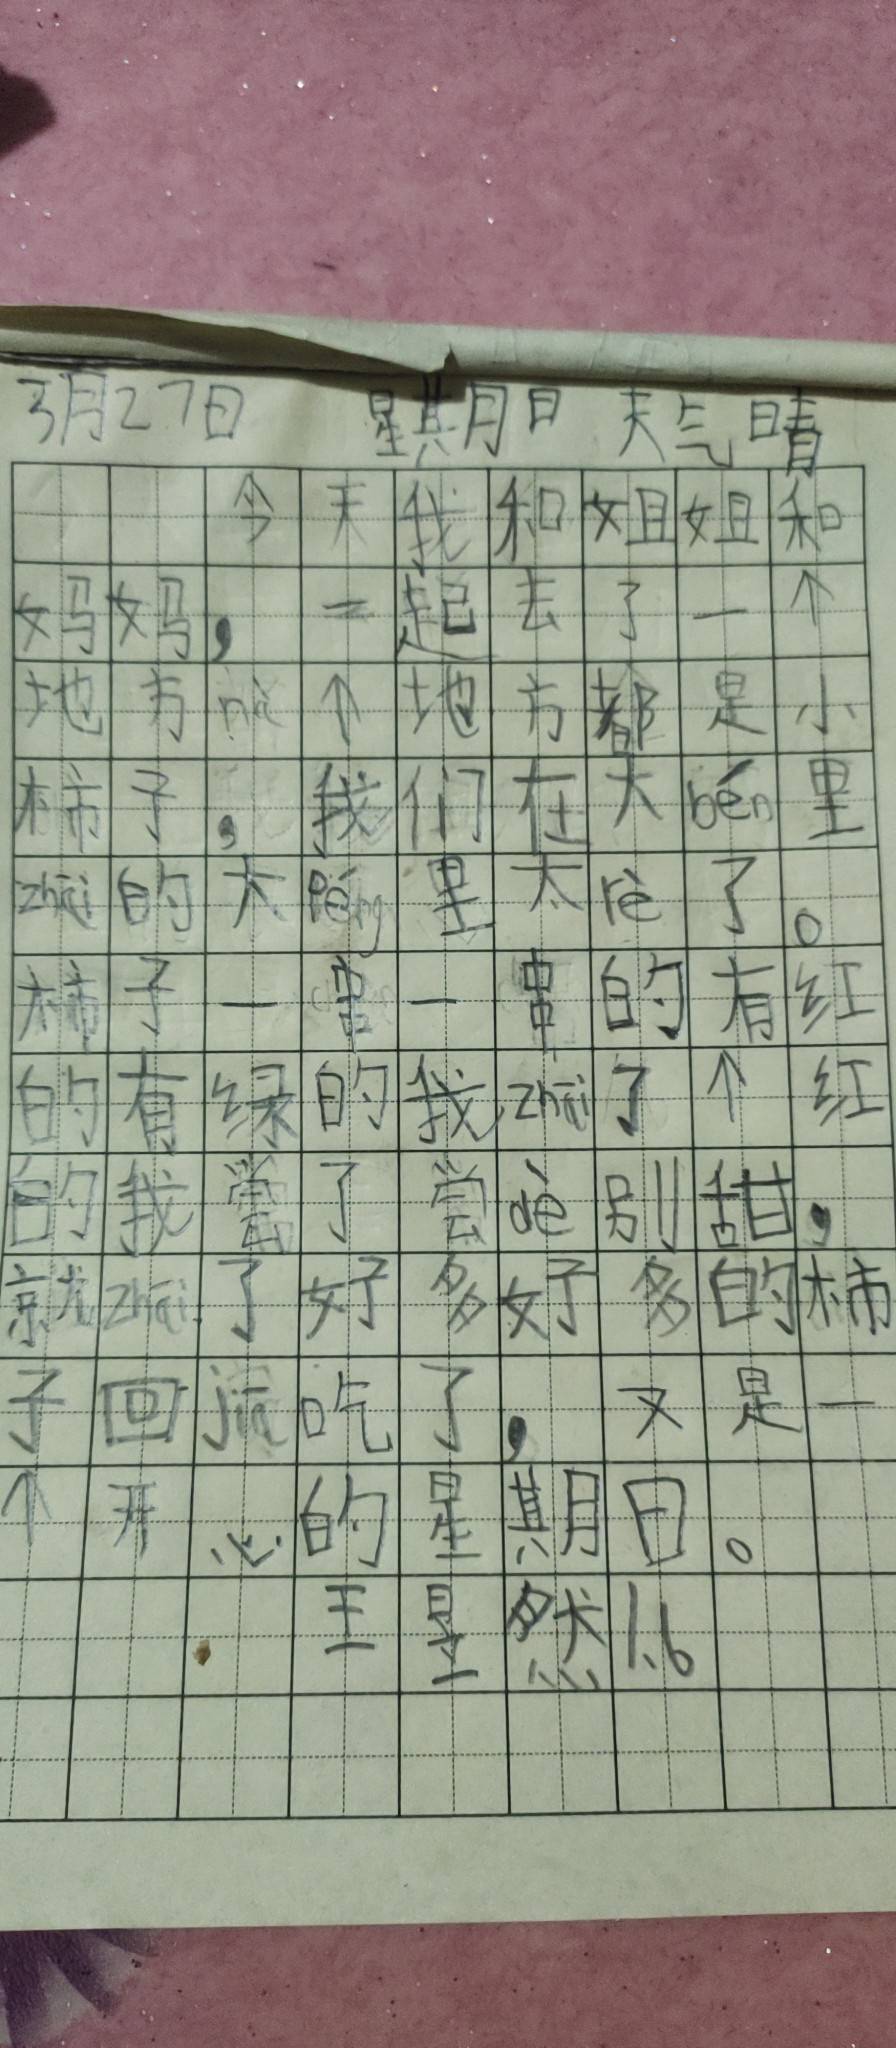 3月27日 星期日 天气晴
今天我和姐姐和
妈妈，一起去了一个
地方nà个地方都是小
柿子，我们在大bén里
zhāi的大péng里太rè了。
柿子一串一串的有红
的有绿的我zhāi了个红
的我尝了尝dè别甜，
就zhāi了好多好多的柿
子回jiā吃了，又是一
个开心的星期日。
王星然1.6